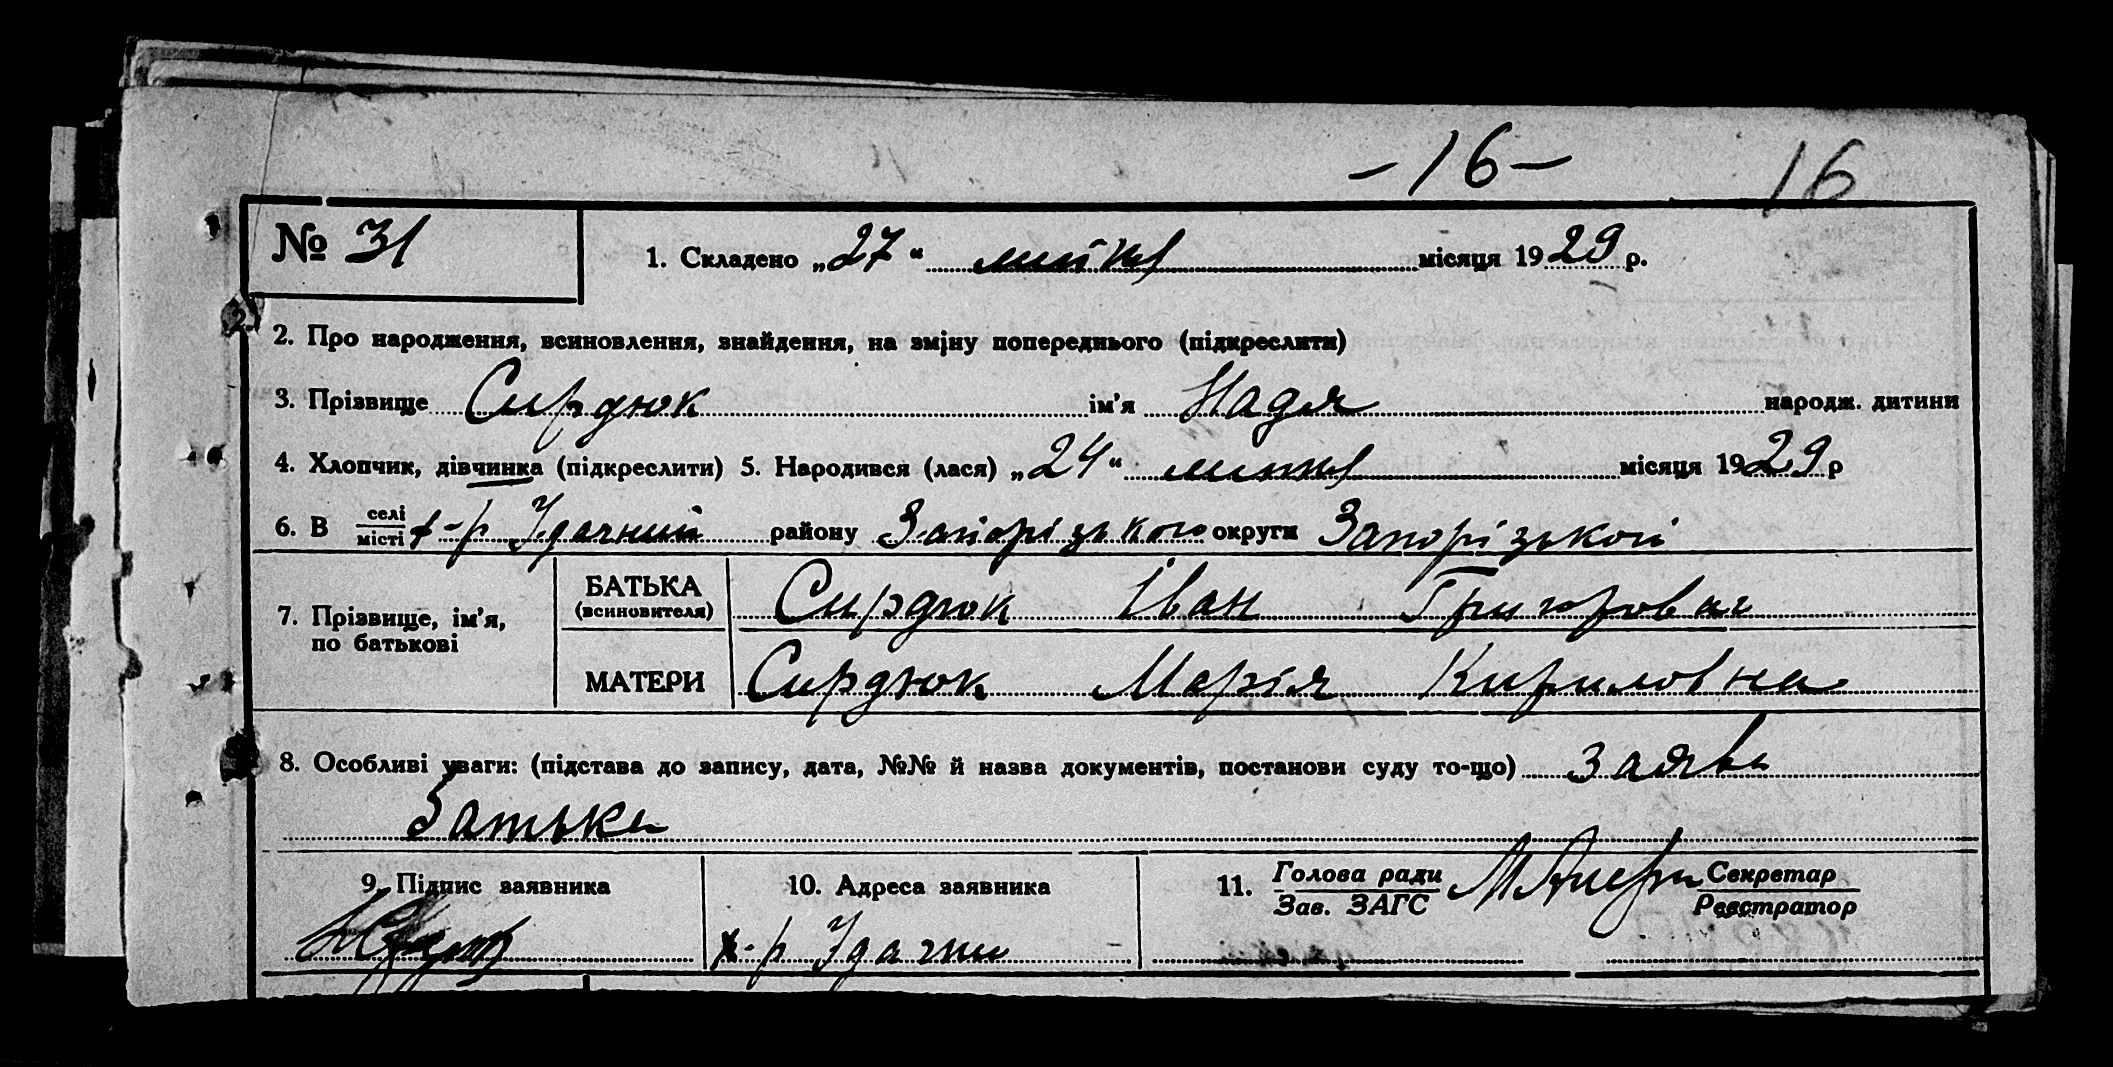 -16- 16
№ 31 1. Складено „27“ липня місяця 1929 р.
2. Про народження, всиновлення, знайдення, на зміну попереднього (підкреслити)
3. Прізвище Сирдюк ім’я Надя народж. дитини
4. Хлопчик, дівчинка (підкреслити) 5. Народився (лася) „24“ липня місяця 1929 р
6. В селі
місті х-р Удачний району Запорізького округи Запорізької
7. Прізвище, ім’я,
по батькові
БАТЬКА
(всиновителя) Сирдюк Іван Григорович
МАТЕРИ Сирдюк Марія Кириловна
8. Особливі уваги: (підстава до запису, дата, №№ й назва документів, постанови суду то-що) заява
батька
9. Підпис заявника 10. Адреса заявника 11. Голова ради Секретар
Зав. ЗАГС Реєстратор
х-р Удачни